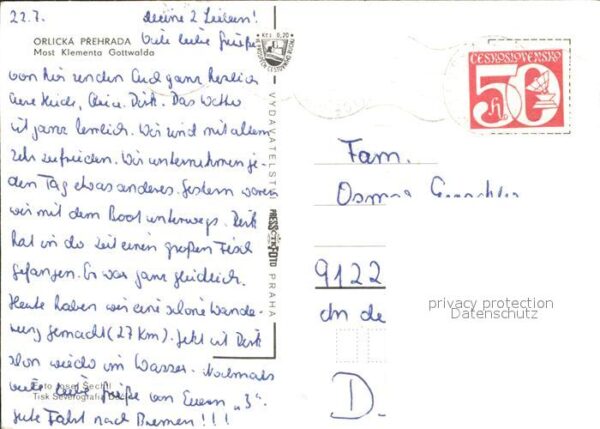 22.7. Meine 2 Lieben!
ORLICKÁ PŘEHRADA
Most Klementa Gottwalda
Viele liebe Grüße
von hier senden Euch ganz herzlich
Eure Heidi, Dirk. Das Wetter
ist ganz herrlich. Wir sind mit allem
sehr zufrieden. Wir unternehmen je-
den Tag etwas anderes. Gestern waren
wir mit dem Boot unterwegs. Dirk
hat in der Zeit einen großen Fisch
gefangen. Er war ganz glücklich.
Heute haben wir eine schöne Wande-
rung gemacht (27 km). Jetzt ist Dirk
schon wieder im Wasser. Nochmals
viele liebe Grüße von Euren "3".
Gute Fahrt nach Bremen!!!
Foto Josef Sechtl
Tisk Severografia
Kčs 0,20
VYDAVATELSTVÍ
PRESSFOTO
PRAHA
ČESKOSLOVENSKO
50
h
Fam.
9122
privacy protection
Datenschutz
D.